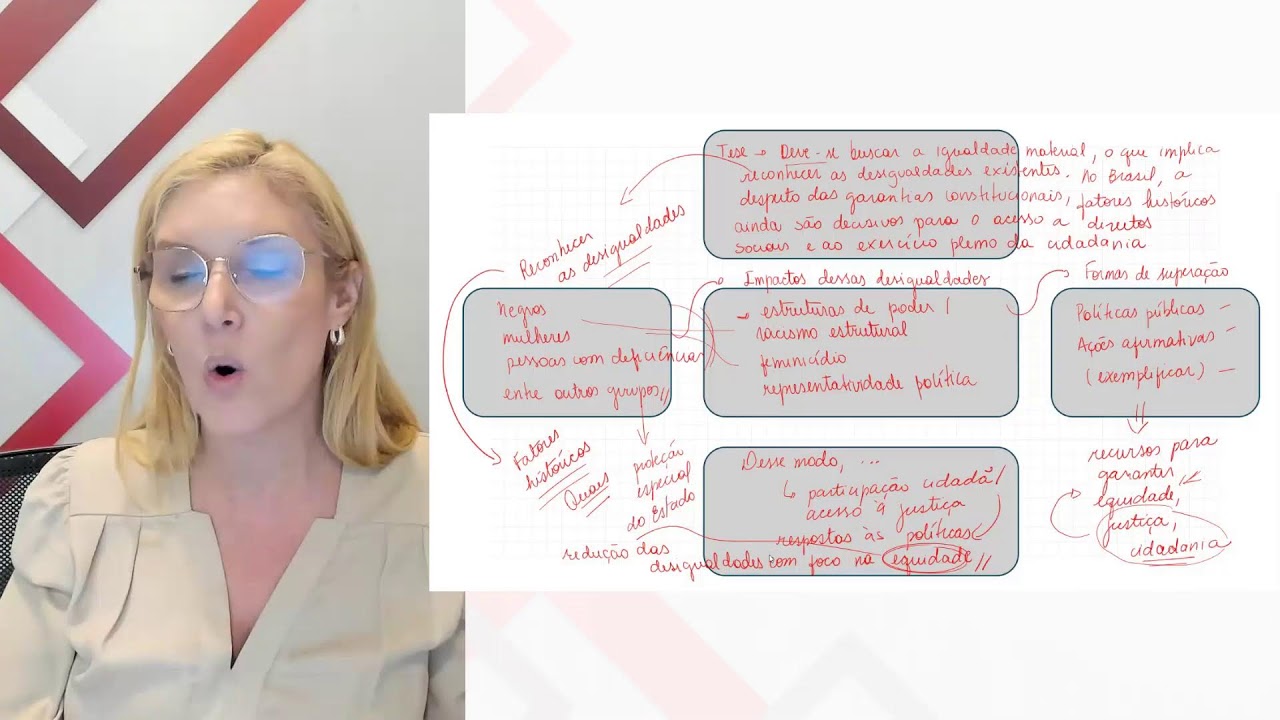 Tese → Deve-se buscar a igualdade material, o que implica
reconhecer as desigualdades existentes. No Brasil, a
despeito das garantias constitucionais, fatores históricos
ainda são decisivos para o acesso a direitos
sociais e ao exercício pleno da cidadania
Reconhecer
as desigualdades
Negros
mulheres
pessoas com deficiências
entre outros grupos
Impactos dessas desigualdades
estruturas de poder /
racismo estrutural
feminicídio
representatividade política
Formas de superação
Políticas públicas
Ações afirmativas
(exemplificar)
Fatores
históricos
Quais
proteção
especial
do Estado
Desse modo, ...
participação cidadã
acesso à justiça
respostas às políticas
redução das
desigualdades com foco na equidade
recursos para
garantir
equidade,
justiça,
cidadania